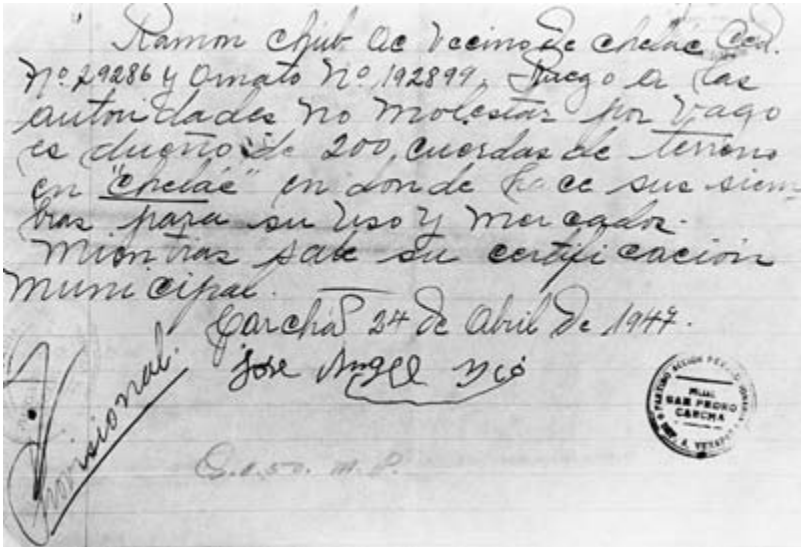 Ramon Chub Ac Vecino de Chelac Ced.
Nº 29286 y Ornato Nº 192899. Ruego a las
autoridades no molestar por vago
es dueño de 200 cuerdas de terreno
en "Chelac" en donde hace sus siem-
bras para su uso y mercados.
Mientras sale su certificación
Municipal.
Carcha 24 de Abril de 1947.
Jose Angel Ico
Provisional.
PARTIDO ACCION
FILIAL
SAN PEDRO
CARCHA